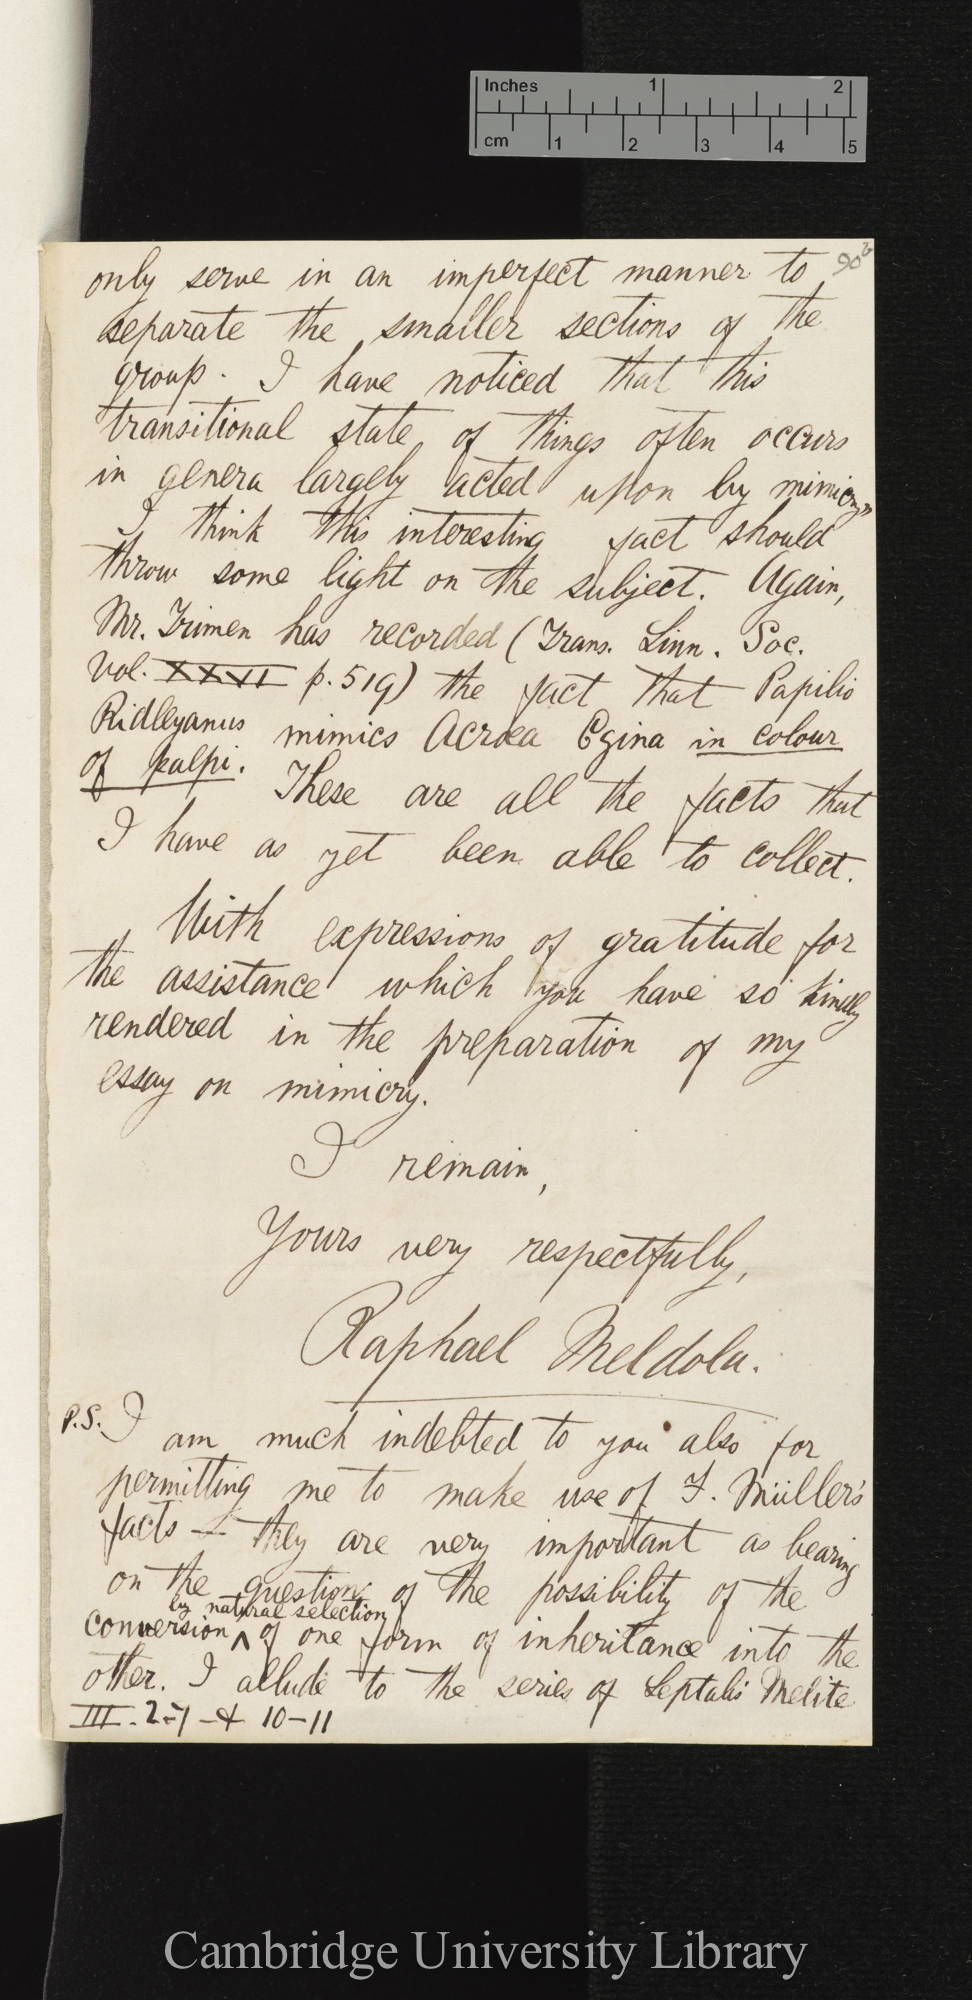 Inches 1 2
cm 1 2 3 4 5
90b
only serve in an imperfect manner to
separate the smaller sections of the
group. I have noticed that this
transitional state of things often occurs
in genera largely acted upon by mimicry"
I think this interesting fact should
throw some light on the subject. Again,
Mr. Trimen has recorded (Trans. Linn. Soc.
Vol. XXVI p. 519) the fact that Papilio
Ridleyanus mimics Acræa Egina in colour
of palpi. These are all the facts that
I have as yet been able to collect.
With expressions of gratitude for
the assistance which you have so kindly
rendered in the preparation of my
essay on mimicry.
I remain,
Yours very respectfully,
Raphael Meldola.
P.S. I am much indebted to you also for
permitting me to make use of F. Müller's
facts – they are very important as bearing
on the question of the possibility of the
by natural selection
conversion ^ of one form of inheritance into the
other. I allude to the series of Leptalis Melite
III. 2-7 & 10-11
Cambridge University Library